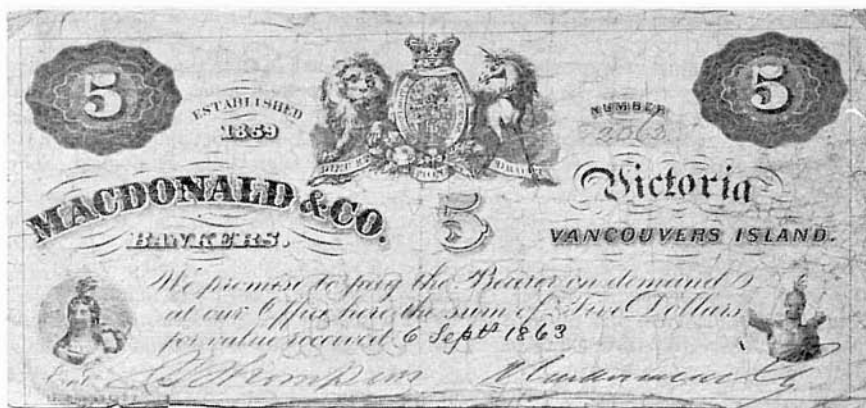 5
5
ESTABLISHED
1859
NUMBER
DIEU ET MON DROIT
MACDONALD & CO.
BANKERS.
5
Victoria
VANCOUVERS ISLAND.
We promise to pay the Bearer on demand
at our Office here the sum of Five Dollars
for value received 6 Septr 1863